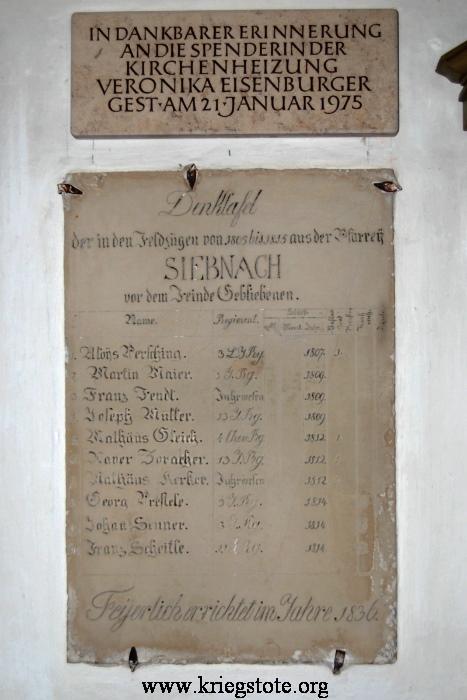 IN DANKBARER ERINNERUNG
AN DIE SPENDERIN DER
KIRCHENHEIZUNG
VERONIKA EISENBURGER
GEST·AM 21·JANUAR 1975
Denktafel
der in den Feldzügen von 1805 bis 1815 aus der Pfarreÿ
SIEBNACH
vor dem Feinde Gebliebenen.
Name. Regiment.
Aloÿs Persching. 1807. 1.
2 Martin Maier. 1809.
Franz Fendt. Fuhrwesen 1809.
Joseph Müller. 13 J.Rg. 1809
Mathäus Gleich. 1812 1
Xaver Zoracher. 13 J.Rg. 1812
Mathäus Kerker. Fuhrwesen 1812
Georg Prestele. 1814
Johan Senner. 1814
Franz Scheitle. 1814
Feÿerlich errichtet im Jahre 1836.
www.kriegstote.org